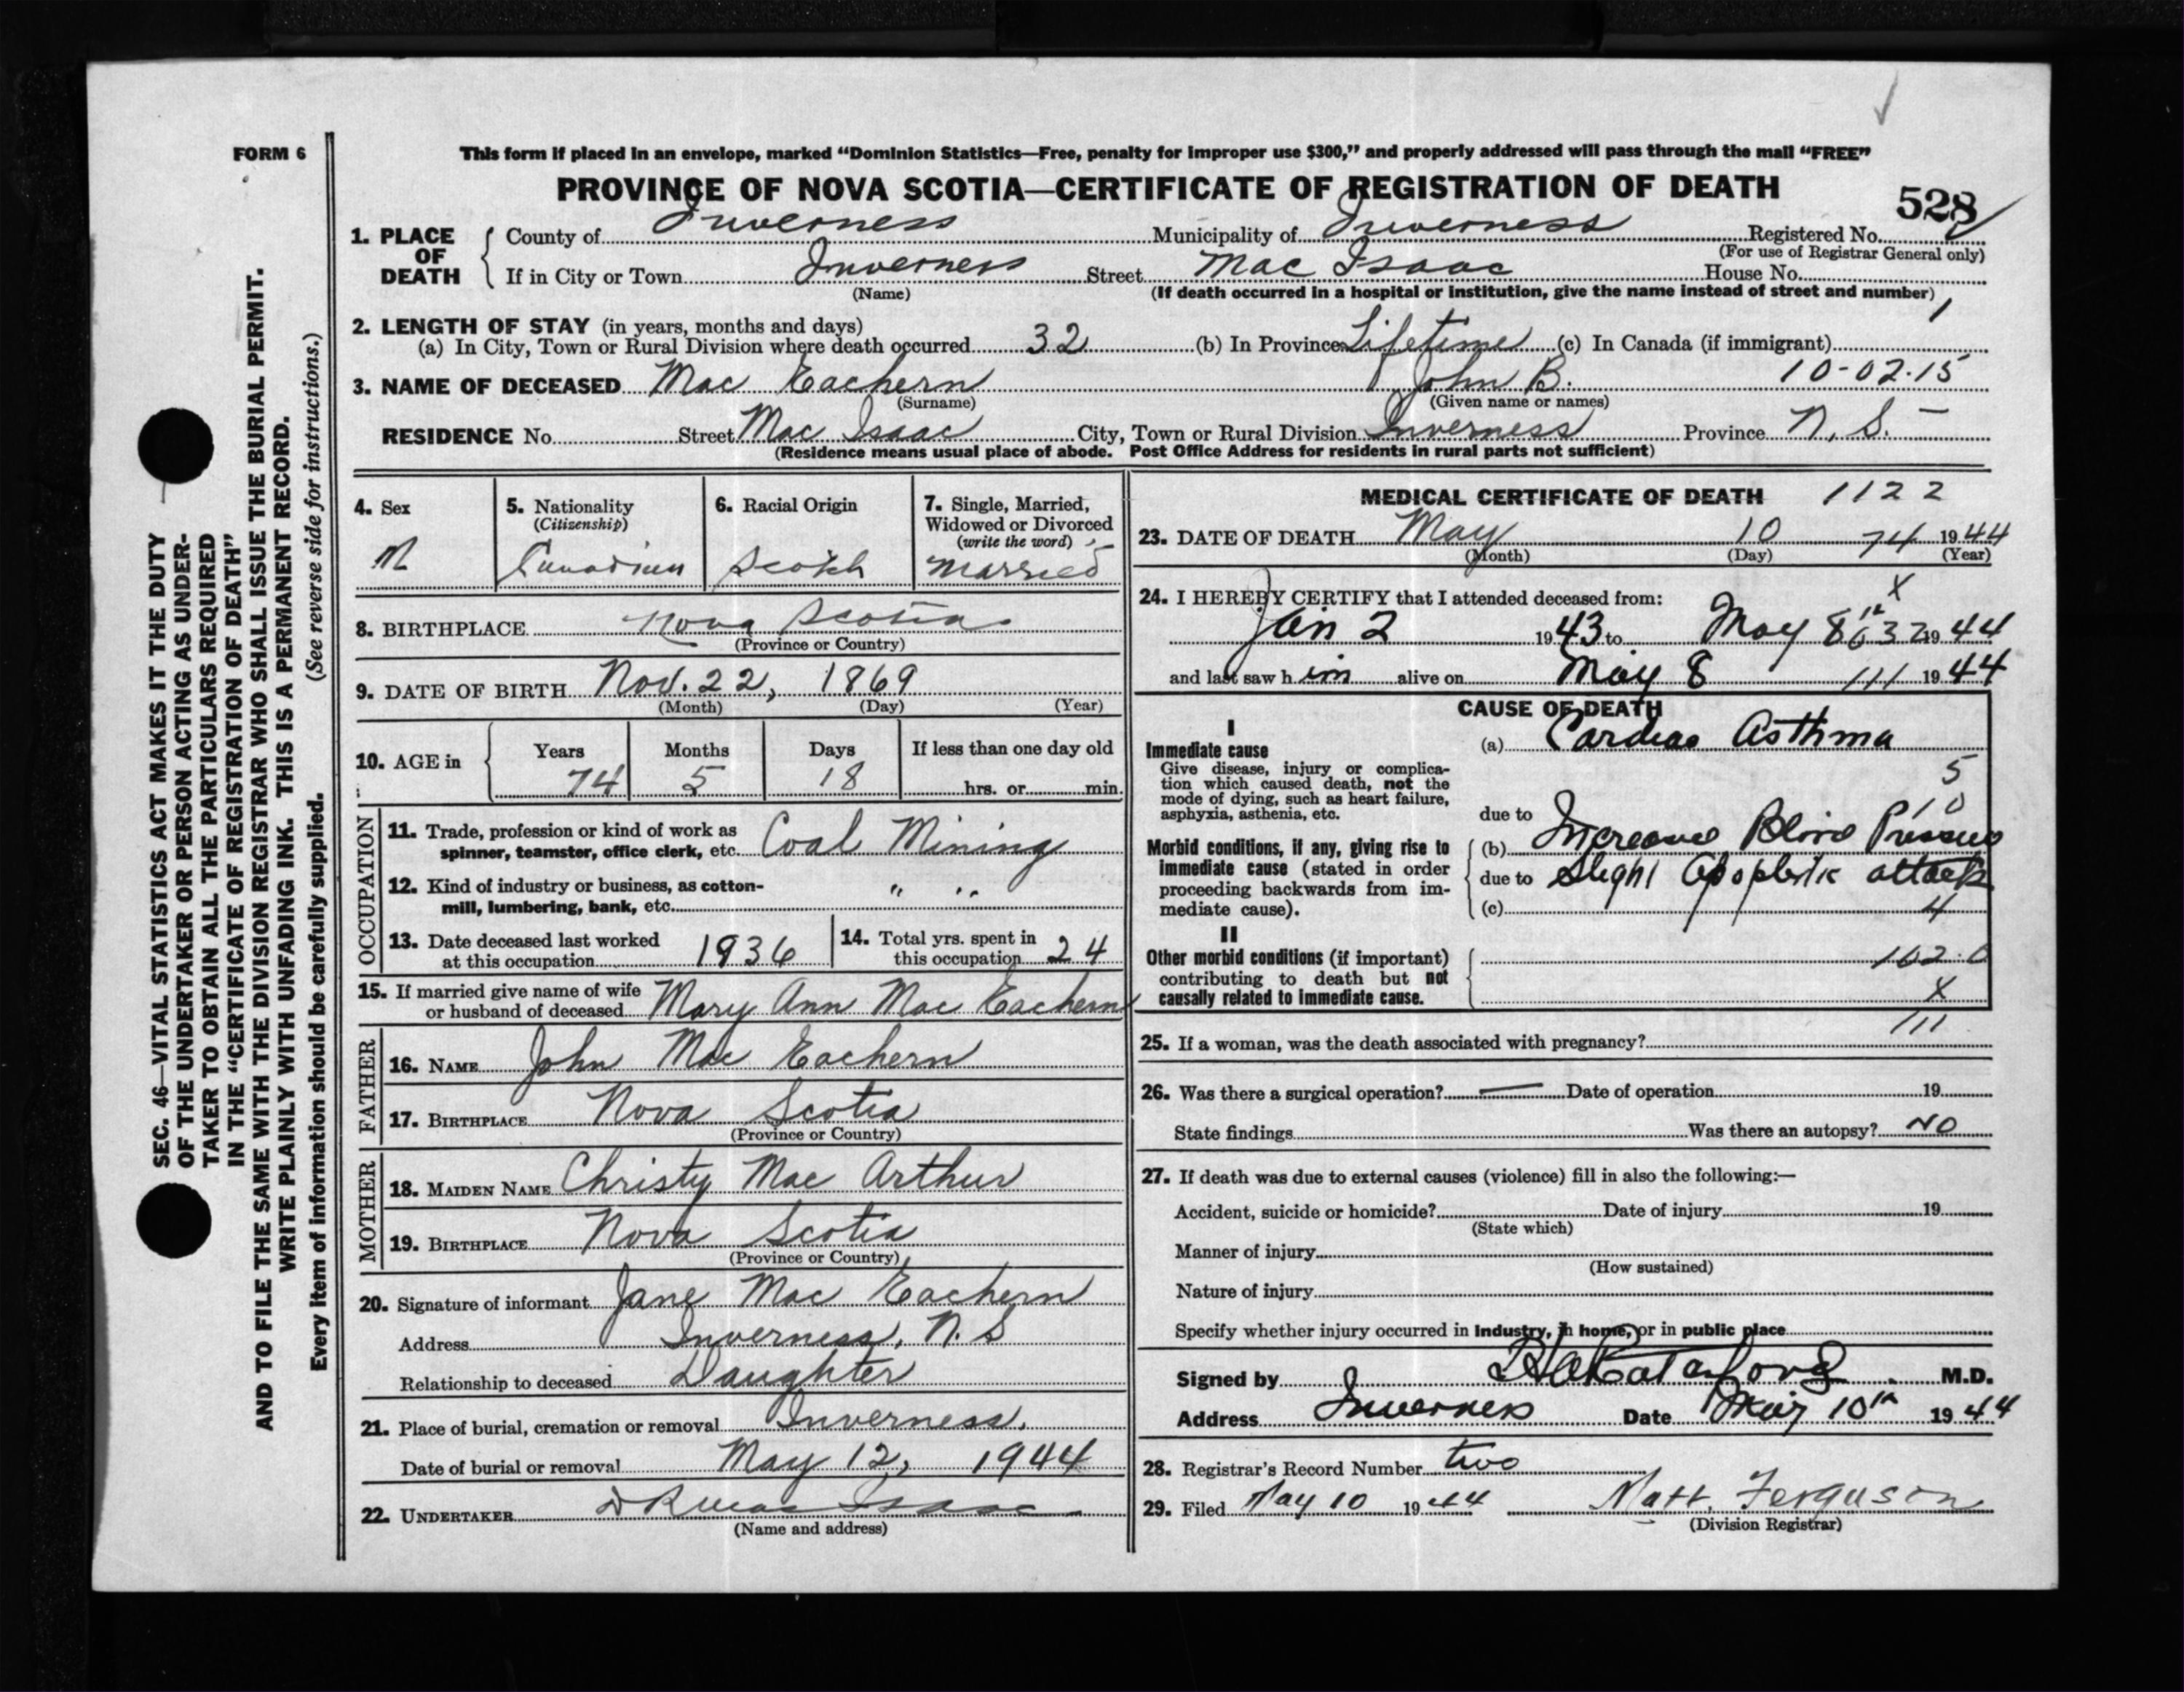 FORM 6
This form if placed in an envelope, marked “Dominion Statistics—Free, penalty for improper use $300,” and properly addressed will pass through the mail “FREE”
PROVINCE OF NOVA SCOTIA—CERTIFICATE OF REGISTRATION OF DEATH
528
1. PLACE OF DEATH
County of Inverness Municipality of Inverness Registered No.
(For use of Registrar General only)
If in City or Town Inverness Street Mac Isaac House No.
(Name) (If death occurred in a hospital or institution, give the name instead of street and number)
1
2. LENGTH OF STAY (in years, months and days)
(a) In City, Town or Rural Division where death occurred 32 (b) In Province Lifetime (c) In Canada (if immigrant)
3. NAME OF DECEASED Mac Eachern John B. 10-02.15
(Surname) (Given name or names)
RESIDENCE No. Street Mac Isaac City, Town or Rural Division Inverness Province N. S.
(Residence means usual place of abode. Post Office Address for residents in rural parts not sufficient)
4. Sex
M
5. Nationality
(Citizenship)
Canadian
6. Racial Origin
Scotch
7. Single, Married,
Widowed or Divorced
(write the word)
Married
8. BIRTHPLACE Nova Scotia
(Province or Country)
9. DATE OF BIRTH Nov. 22, 1869
(Month) (Day) (Year)
10. AGE in
Years Months Days If less than one day old
74 5 18 hrs. or min.
OCCUPATION
11. Trade, profession or kind of work as
spinner, teamster, office clerk, etc. Coal Mining
12. Kind of industry or business, as cotton-
mill, lumbering, bank, etc. " "
13. Date deceased last worked
at this occupation 1936
14. Total yrs. spent in
this occupation 24
15. If married give name of wife
or husband of deceased Mary Ann Mac Eachern
FATHER
16. NAME John Mac Eachern
17. BIRTHPLACE Nova Scotia
(Province or Country)
MOTHER
18. MAIDEN NAME Christy Mac Arthur
19. BIRTHPLACE Nova Scotia
(Province or Country)
20. Signature of informant Jane Mac Eachern
Address Inverness, N.S
Relationship to deceased Daughter
21. Place of burial, cremation or removal Inverness,
Date of burial or removal May 12, 1944
22. UNDERTAKER Isaac
(Name and address)
MEDICAL CERTIFICATE OF DEATH 1122
23. DATE OF DEATH May 10 74 1944
(Month) (Day) (Year)
24. I HEREBY CERTIFY that I attended deceased from: X
Jan 2 1943 to May 8 1944
and last saw him alive on May 8 111 1944
CAUSE OF DEATH
I
Immediate cause
Give disease, injury or complica-
tion which caused death, not the
mode of dying, such as heart failure,
asphyxia, asthenia, etc.
(a) Cardiac Asthma
5
10
due to
Morbid conditions, if any, giving rise to
immediate cause (stated in order
proceeding backwards from im-
mediate cause).
(b) Increased Blood Pressure
due to Slight Apoplectic attack
(c) 4
II
Other morbid conditions (if important)
contributing to death but not
causally related to immediate cause.
102.0
X
111
25. If a woman, was the death associated with pregnancy?
26. Was there a surgical operation? — Date of operation 19
State findings Was there an autopsy? NO
27. If death was due to external causes (violence) fill in also the following:—
Accident, suicide or homicide? Date of injury 19
(State which)
Manner of injury
(How sustained)
Nature of injury
Specify whether injury occurred in Industry, in home, or in public place
Signed by M.D.
Address Inverness Date May 10th 1944
28. Registrar's Record Number two
29. Filed May 10 1944 Matt. Ferguson
(Division Registrar)
SEC. 46—VITAL STATISTICS ACT MAKES IT THE DUTY
OF THE UNDERTAKER OR PERSON ACTING AS UNDER-
TAKER TO OBTAIN ALL THE PARTICULARS REQUIRED
IN THE “CERTIFICATE OF REGISTRATION OF DEATH”
AND TO FILE THE SAME WITH THE DIVISION REGISTRAR WHO SHALL ISSUE THE BURIAL PERMIT.
WRITE PLAINLY WITH UNFADING INK. THIS IS A PERMANENT RECORD.
Every item of information should be carefully supplied. (See reverse side for instructions.)